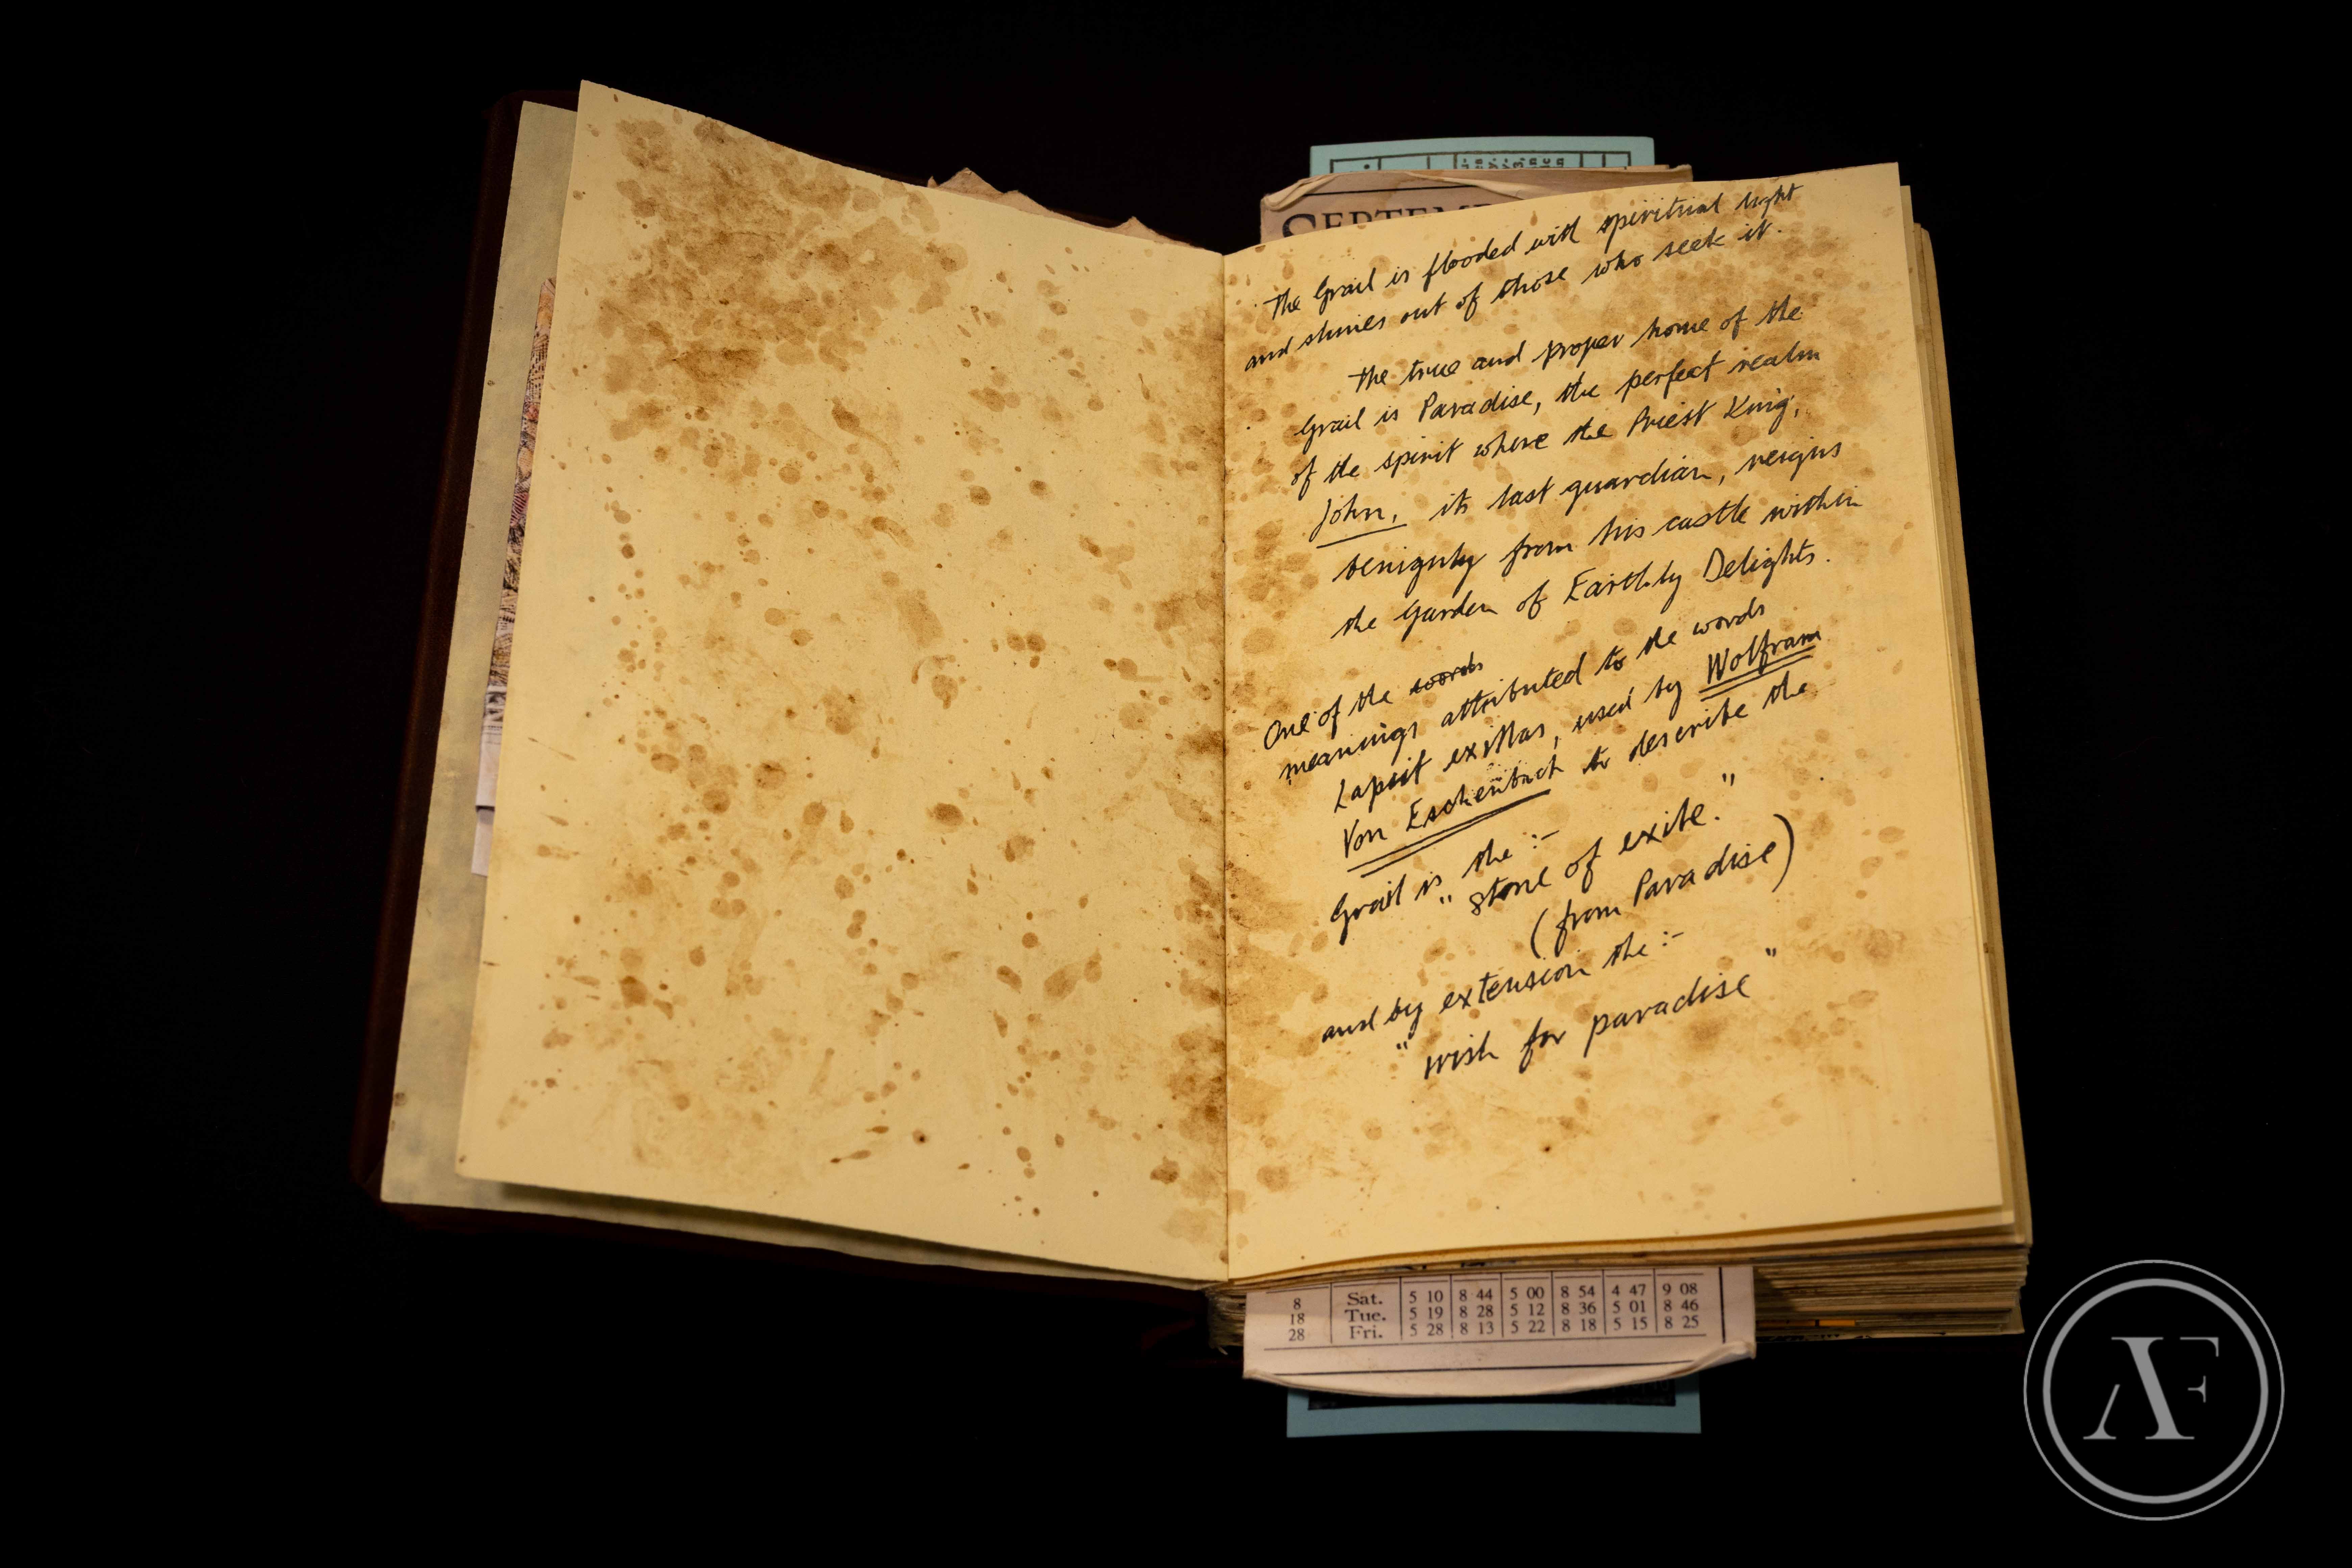 SEPTEMB
The Grail is flooded with spiritual light
and shines out of those who seek it.
The true and proper home of the
Grail is Paradise, the perfect realm
of the spirit where the Priest King,
John, its last guardian, reigns
benignly from his castle within
the Garden of Earthly Delights.
One of the words
meanings attributed to the words
Lapsit exillas, used by Wolfram
Von Eschenbach to describe the
Grail is the :-
"stone of exile."
(from Paradise)
and by extension the :-
"wish for paradise"
8 Sat. 5 10 8 44 5 00 8 54 4 47 9 08
18 Tue. 5 19 8 28 5 12 8 36 5 01 8 46
28 Fri. 5 28 8 13 5 22 8 18 5 15 8 25
AF